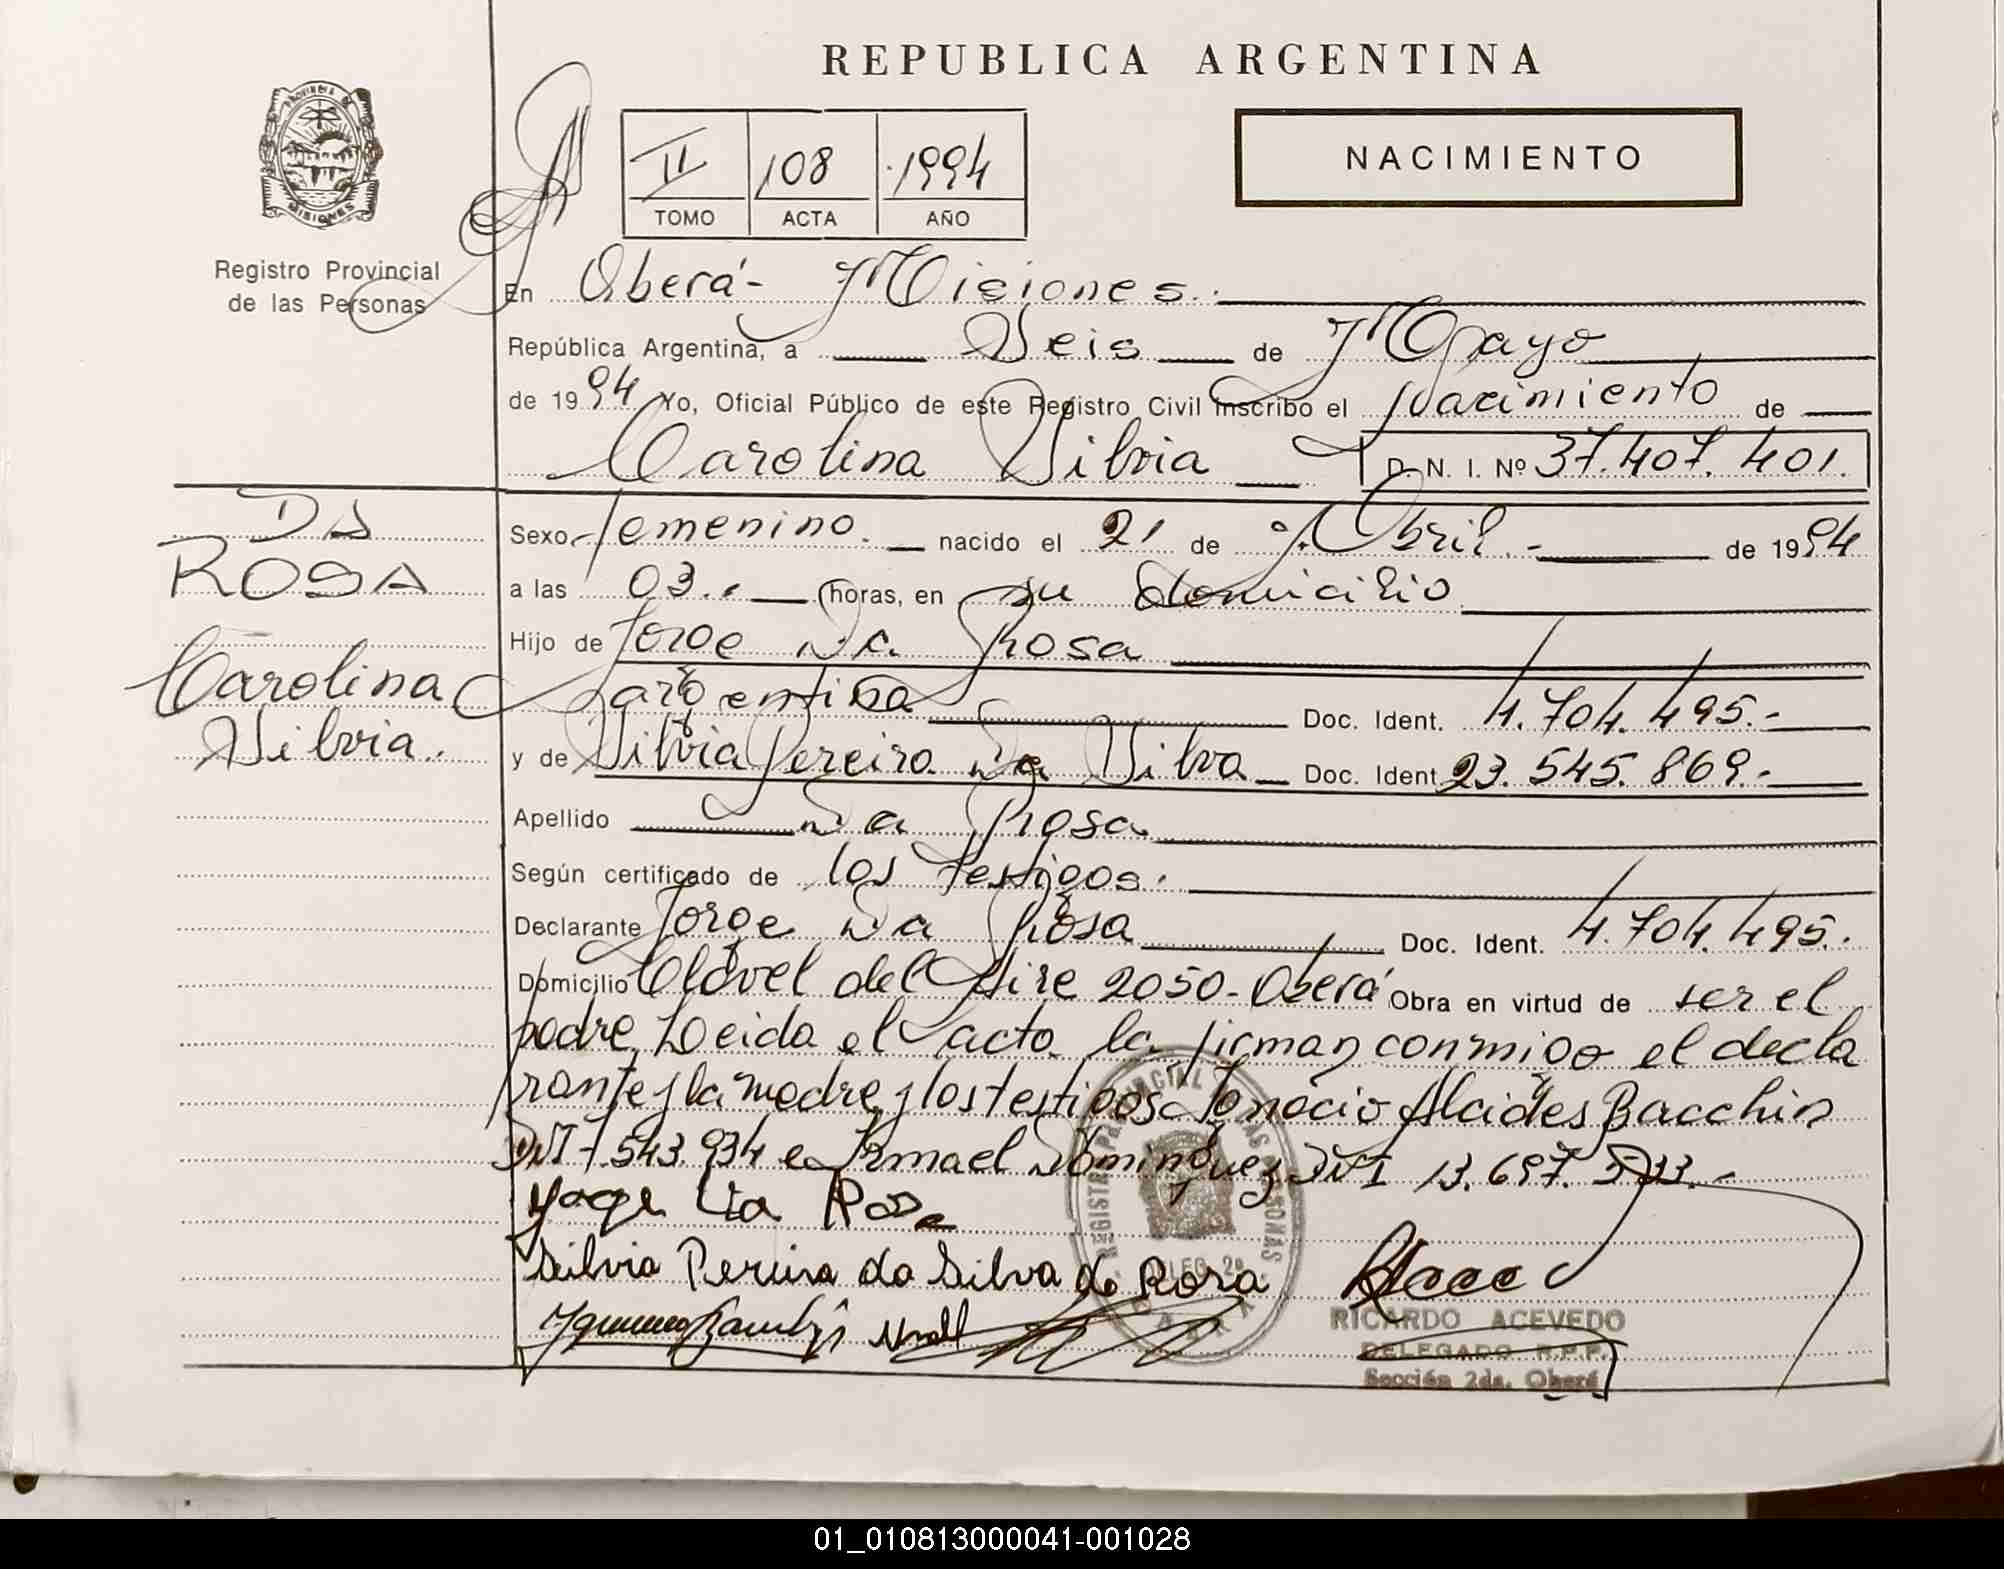 REPUBLICA ARGENTINA
PROVINCIA DE
MISIONES
Registro Provincial
de las Personas
II 108 1994
TOMO ACTA AÑO
NACIMIENTO
En Oberá - Misiones.
República Argentina, a Seis de Mayo
de 1994 Yo, Oficial Público de este Registro Civil inscribo el Nacimiento de
Carolina Silvia D. N. I. Nº 37.407.401.
DA
ROSA
Carolina
Silvia.
Sexo femenino. nacido el 21 de Abril.- de 1994
a las 03.. horas, en su domicilio
Hijo de Jorge Da Rosa
argentina Doc. Ident. 4.704.495.-
y de Silvia Pereira Da Silva Doc. Ident. 23.545.869.-
Apellido Da Rosa
Según certificado de los testigos.
Declarante Jorge Da Rosa Doc. Ident. 4.704.495.
Domicilio Clavel del Aire 2050-Oberá Obra en virtud de ser el
padre, Leida el acta la firman conmigo el decla
rante y la madre y los testigos Ignacio Alcides Bacchin
DNI 7.543.934 e Ismael Dominguez DNI 13.697.
Jorge Da Rosa
Silvia Pereira da Silva da Rosa
REGISTRO PROVINCIAL DE LAS PERSONAS
RICARDO ACEVEDO
DELEGADO R.P.P.
Sección 2da. Oberá
01_010813000041-001028